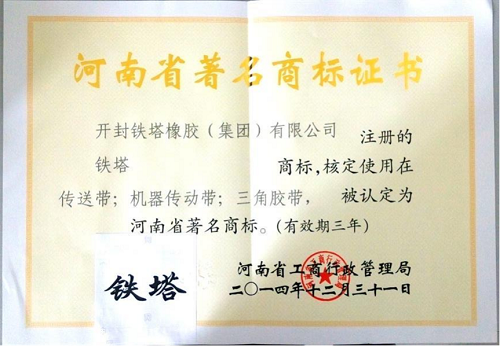 河南省著名商标证书
开封铁塔橡胶（集团）有限公司 注册的
铁塔 商标，核定使用在
传送带；机器传动带；三角胶带， 被认定为
河南省著名商标。（有效期三年）
铁塔
河南省工商行政管理局
二〇一四年十二月三十一日